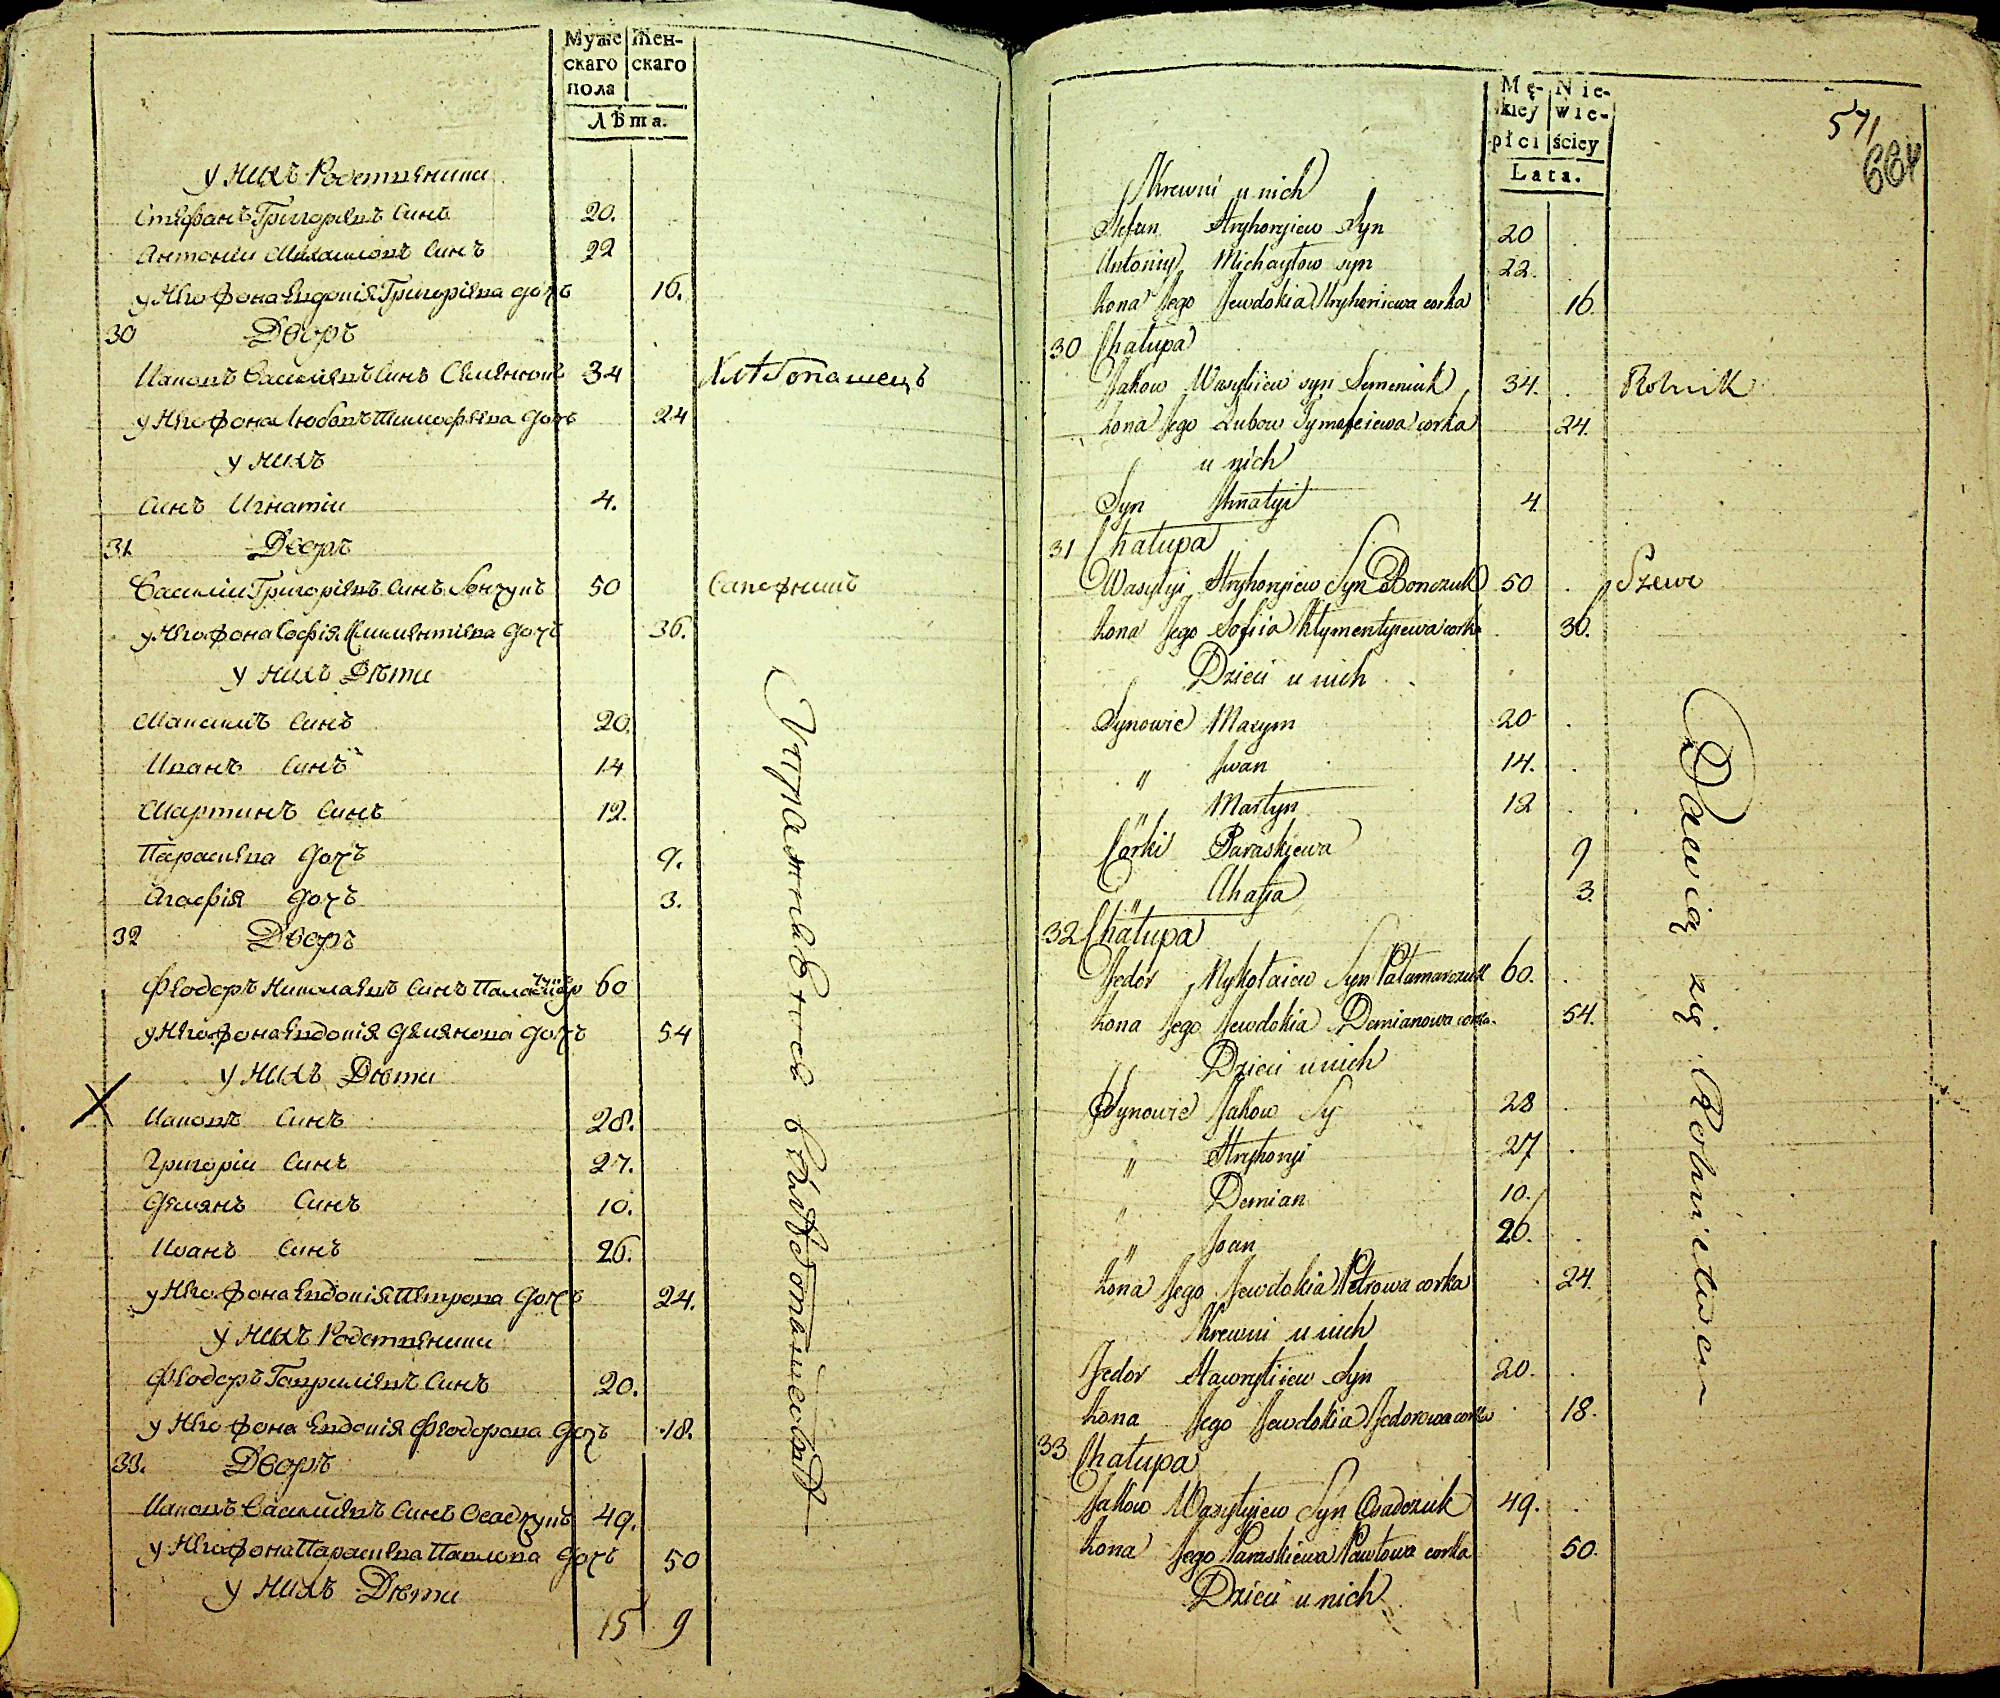 Муже Жен-
скаго скаго
пола
Лѣта.
у нихъ Родствѣники
Стефанъ Григоріевъ синъ 20.
Антоній Михаиловъ синъ 22
у него жона Евдокія Григоріева дочъ 16.
30 Дворъ
Иаковъ Василіевъ синъ Семенюкъ 34 Хлѣбопашецъ
у него жона Любовъ Тимофѣева дочъ 24
у нихъ
синъ Игнатій 4.
31. Дворъ
Василій Григоріевъ синъ Бончукъ 50 Сапожникъ
у него жона Софія Климентіева дочъ 36.
у нихъ Дѣти
Максимъ синъ 20.
Иванъ синъ 14
Мартинъ синъ 12.
Параскева дочъ 9.
Агафія дочъ 3.
32 Дворъ
Феодоръ Николаевъ синъ 60
у него жона Евдокія Демянова дочъ 54
у нихъ Дѣти
Иаковъ синъ 28.
Григорій синъ 27.
Демянъ синъ 10.
Иванъ синъ 26.
у него жона Евдокія Петрова дочъ 24.
у нихъ Родствѣники
Феодоръ Гавриліевъ синъ 20.
у него жона Евдокія Феодорова дочъ 18.
33. Дворъ
Иаковъ Василіевъ синъ Осадчукъ 49.
у него жона Параскева Павлова дочъ 50
у нихъ Дѣти
15 9
Упражняются в хлѣбопашествѣ
Mę- Nie-
skiey wie-
płci ściey
Lata.
571
684
Krewni u nich
Stefan Hryhoryiew Syn 20
Antoniy Michayłow syn 22.
żona Jego Jewdokia Hryhoriewa corka 16
30 Chałupa
Jakow Wasyliiew syn Semeniuk 34. Rolnik
żona Jego Lubow Tymofeiewa corka 24.
u nich
Syn Ihnatyi 4
31 Chałupa
Wasylyi Hryhoryiew Syn Bonczuk 50 Szewc
żona Jego Sofiia Klymentyiewa corka 36.
Dzieci u nich
Synowie Maxym 20
" Iwan 14.
" Martyn 12
Córki Paraskiewa 9
" Ahafia 3.
32 Chałupa
Fedor Mykołaiew Syn Pałamarczuk 60.
żona Jego Jewdokia Demianowa corka 54.
Dzieci u nich
Synowie Jakow Sy 28
" Hryhoryi 27
" Demian 10.
" Joan 26.
żona Jego Jewdokia Petrowa corka 24.
Krewni u nich
Fedor Hawryliiew Syn 20.
żona Jego Jewdokia Fedorowa corka 18.
33 Chałupa
Jakow Wasylyiew Syn Osadczuk 49.
żona Jego Paraskiewa Pawłowa corka 50.
Dzieci u nich
Bawią się Rolnictwem